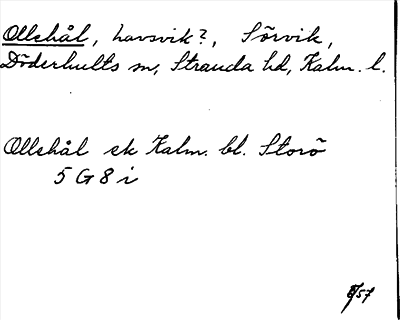 Ollehål, havsvik?, Sörvik,
Döderhults sn, Stranda hd, Kalm. l.
Ollehål ek Kalm. bl. Storö
5 G 8 i
/57